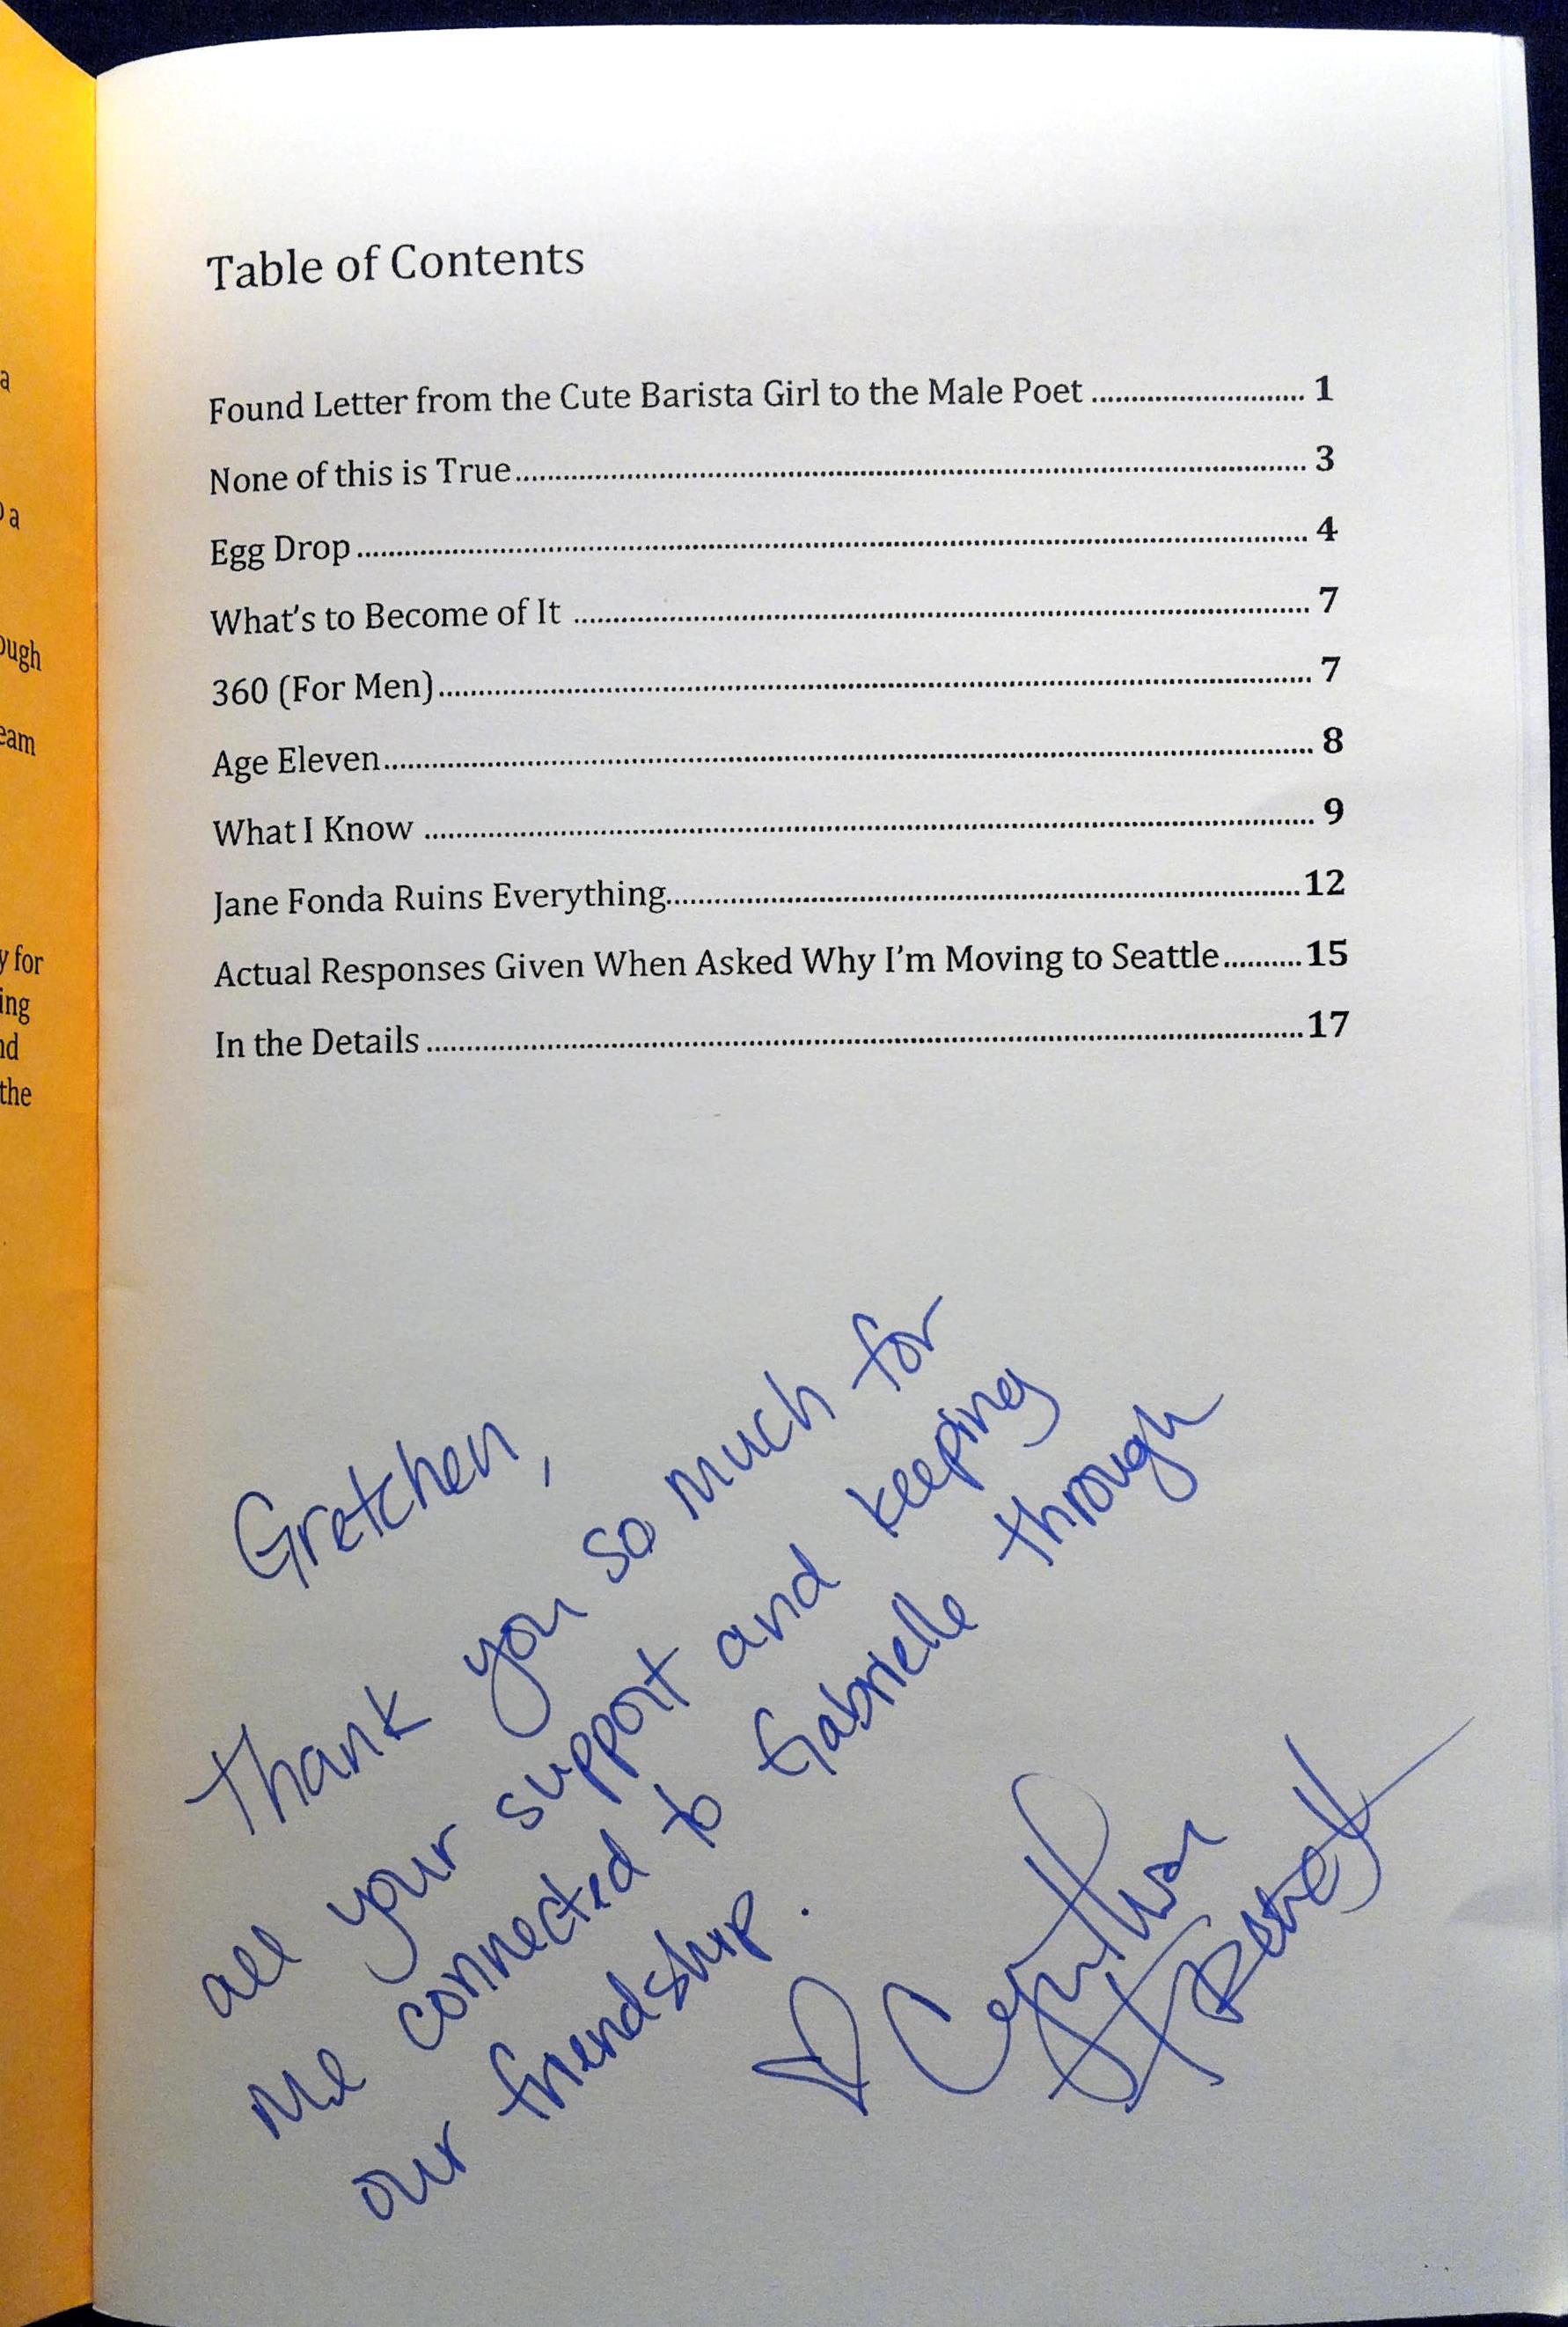 a
a
ough
eam
y for
ing
nd
the
Table of Contents
Found Letter from the Cute Barista Girl to the Male Poet ........................... 1
None of this is True .................................................................................... 3
Egg Drop .................................................................................................... 4
What's to Become of It .............................................................................. 7
360 (For Men) ............................................................................................ 7
Age Eleven ................................................................................................. 8
What I Know .............................................................................................. 9
Jane Fonda Ruins Everything ................................................................... 12
Actual Responses Given When Asked Why I'm Moving to Seattle .......... 15
In the Details ............................................................................................ 17
Gretchen,
Thank you so much for
all your support and keeping
me connected to Gabrielle through
our friendship.